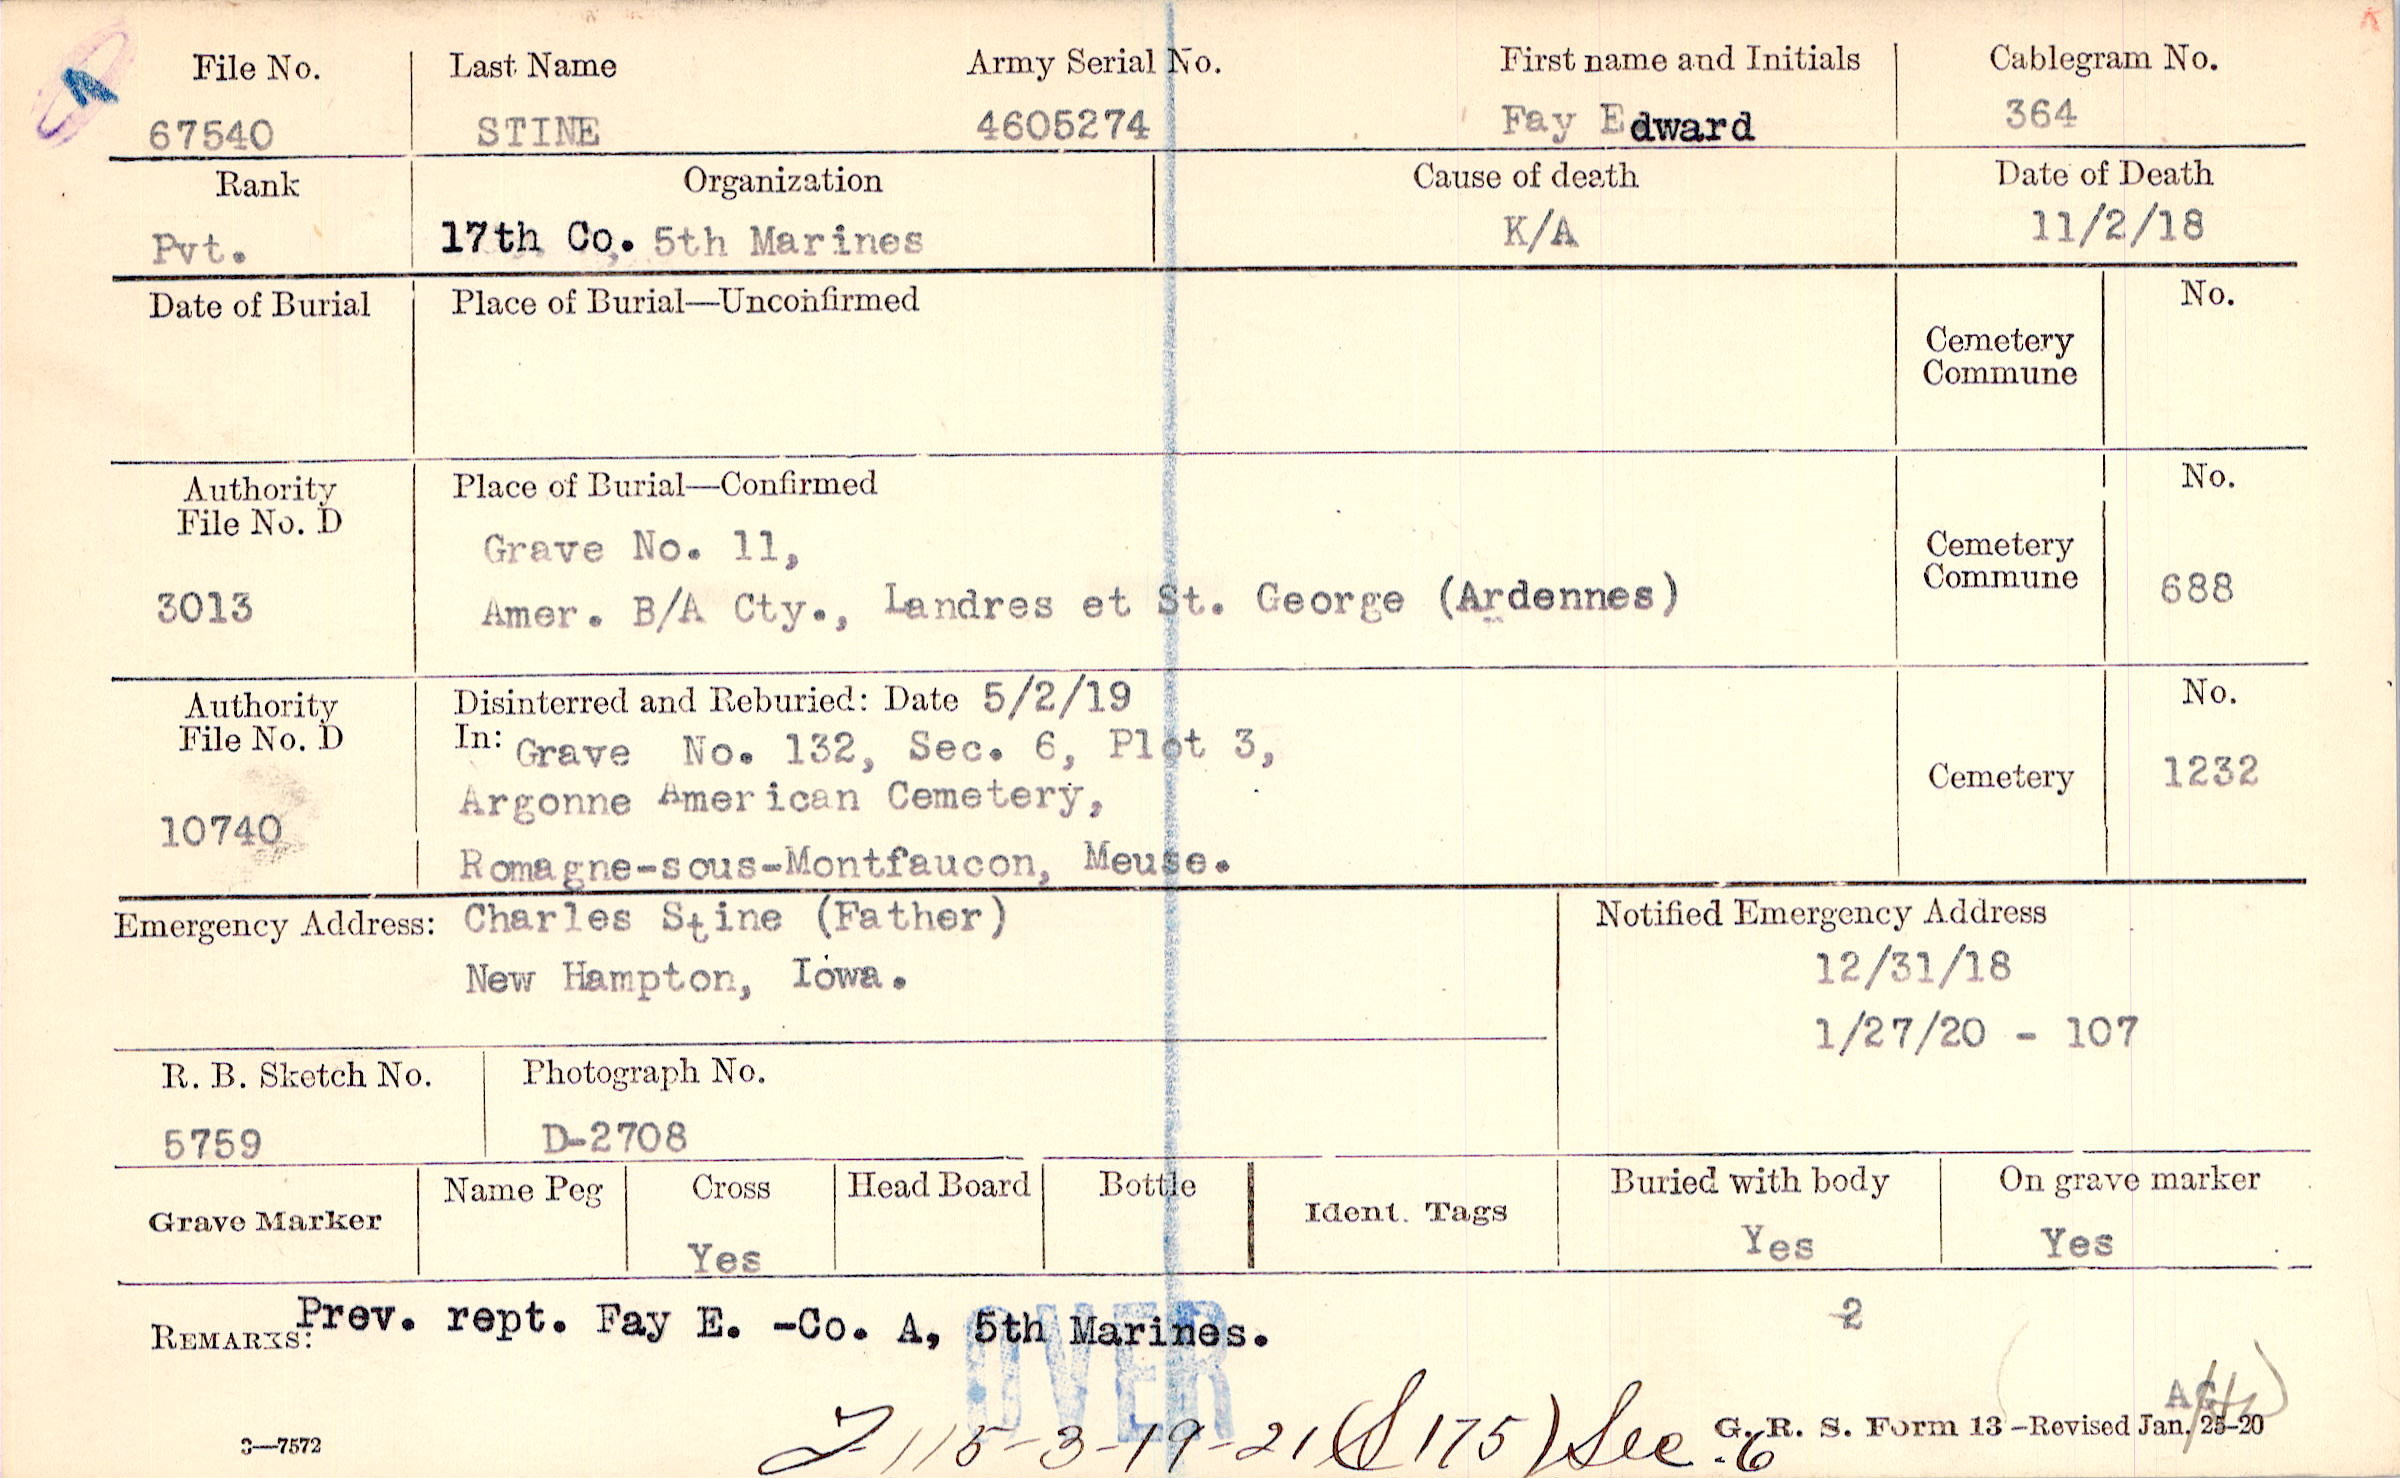 File No. Last Name Army Serial No. First name and Initials Cablegram No.
67540 STINE 4605274 Fay Edward 364
Rank Organization Cause of death Date of Death
Pvt. 17th Co. 5th Marines K/A 11/2/18
Date of Burial Place of Burial—Unconfirmed No.
Cemetery
Commune
Authority Place of Burial—Confirmed No.
File No. D
Grave No. 11, Cemetery
Commune
3013 Amer. B/A Cty., Landres et St. George (Ardennes) 688
Authority Disinterred and Reburied: Date 5/2/19 No.
File No. D In: Grave No. 132, Sec. 6, Plot 3,
Argonne American Cemetery, Cemetery 1232
10740
Romagne-sous-Montfaucon, Meuse.
Emergency Address: Charles Stine (Father) Notified Emergency Address
New Hampton, Iowa. 12/31/18
1/27/20 - 107
R. B. Sketch No. Photograph No.
5759 D-2708
Grave Marker Name Peg Cross Head Board Bottle Ident. Tags Buried with body On grave marker
Yes Yes Yes
REMARKS: Prev. rept. Fay E. -Co. A, 5th Marines. 2
OVER
115-3-19-21 (S 175) Sec. 6
3—7572 G. R. S. Form 13—Revised Jan. 25-20